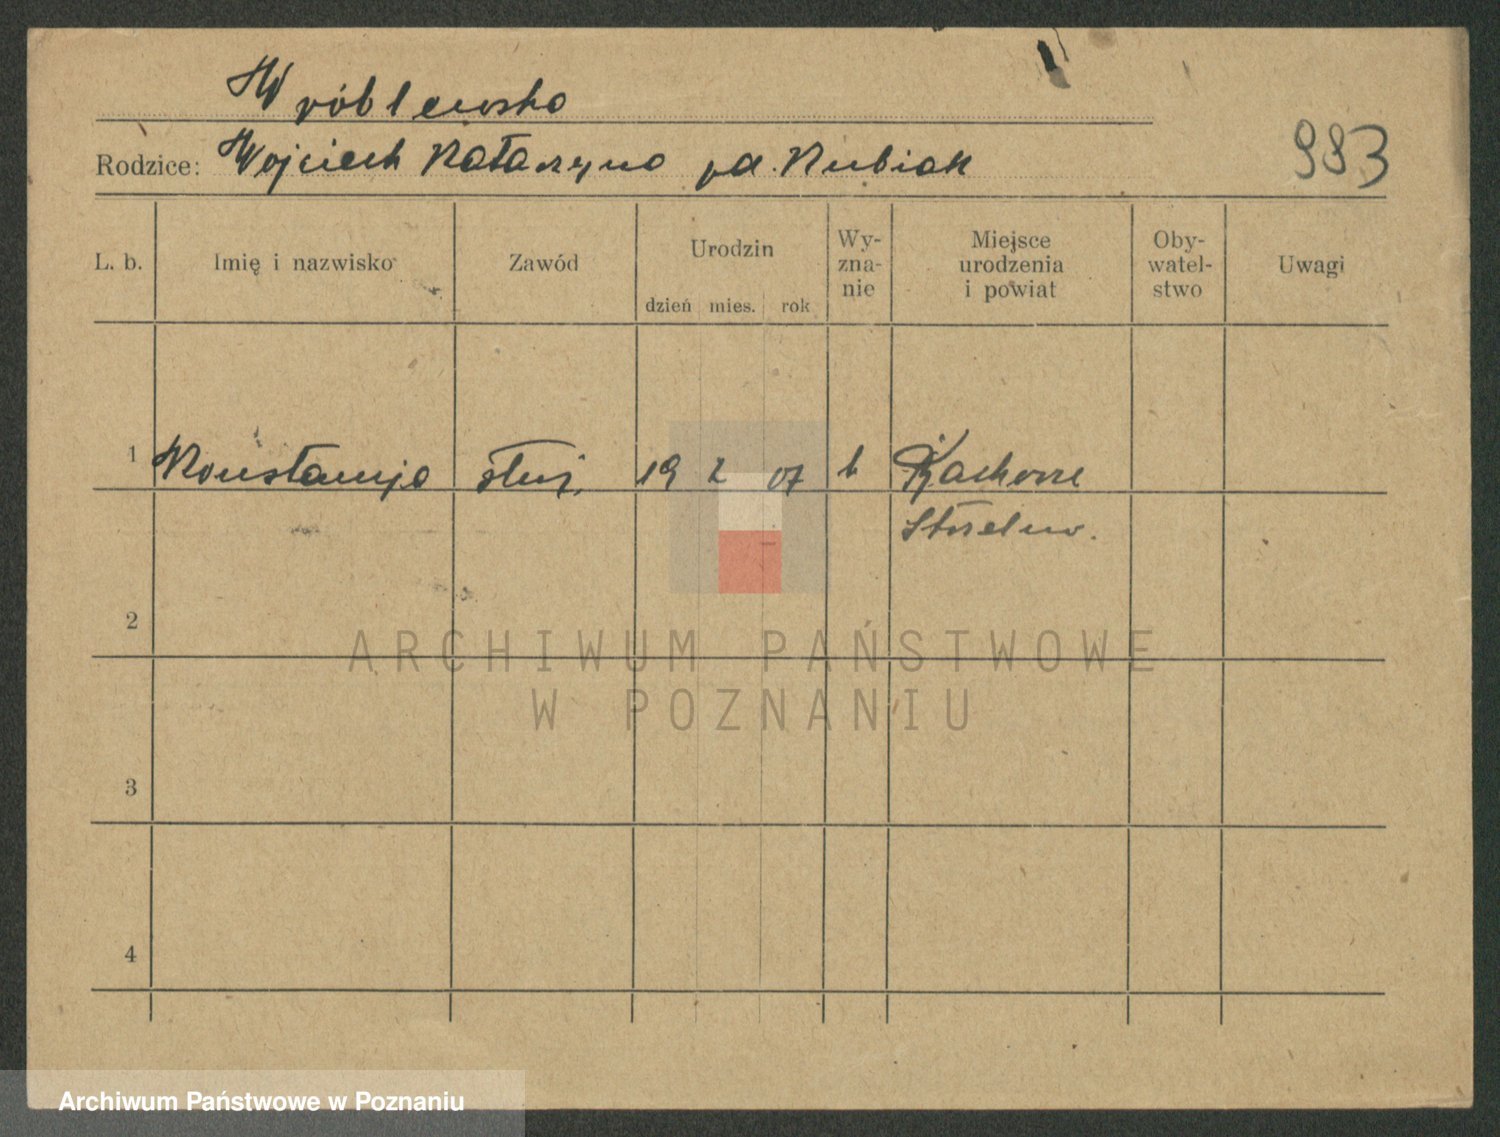 Wróblewska
Rodzice: Wojciech Katarzyna zd. Kubiak
983
L. b. Imię i nazwisko Zawód Urodzin dzień mies. rok Wy-zna-nie Miejsce urodzenia i powiat Oby-watel-stwo Uwagi
1 Konstancja służ. 19 2 07 k
Strzelno.
2
3
4
ARCHIWUM PAŃSTWOWE
W POZNANIU
Archiwum Państwowe w Poznaniu